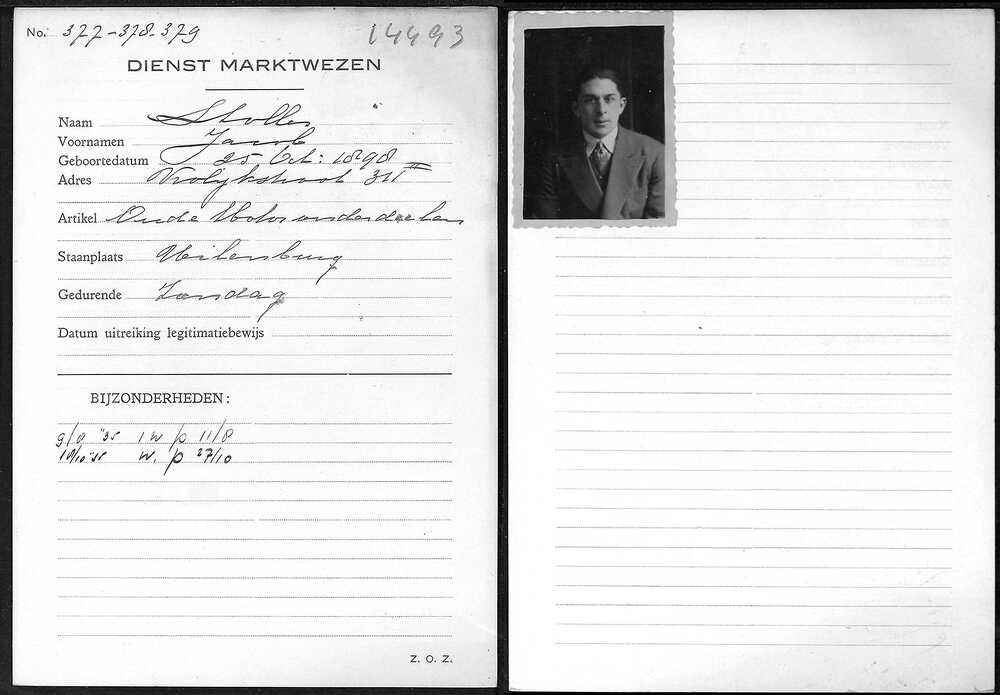 No. 377-378-379
14493
DIENST MARKTWEZEN
Naam Stolle
Voornamen Jacob
Geboortedatum 25 Oct: 1898
Adres 311 III
Artikel Oude Motoronderdeelen
Staanplaats Uilenburg
Gedurende Zondag
Datum uitreiking legitimatiebewijs
BIJZONDERHEDEN:
9/8 '35 1 w p 11/8
10/10 '35 w. p 27/10
Z. O. Z.